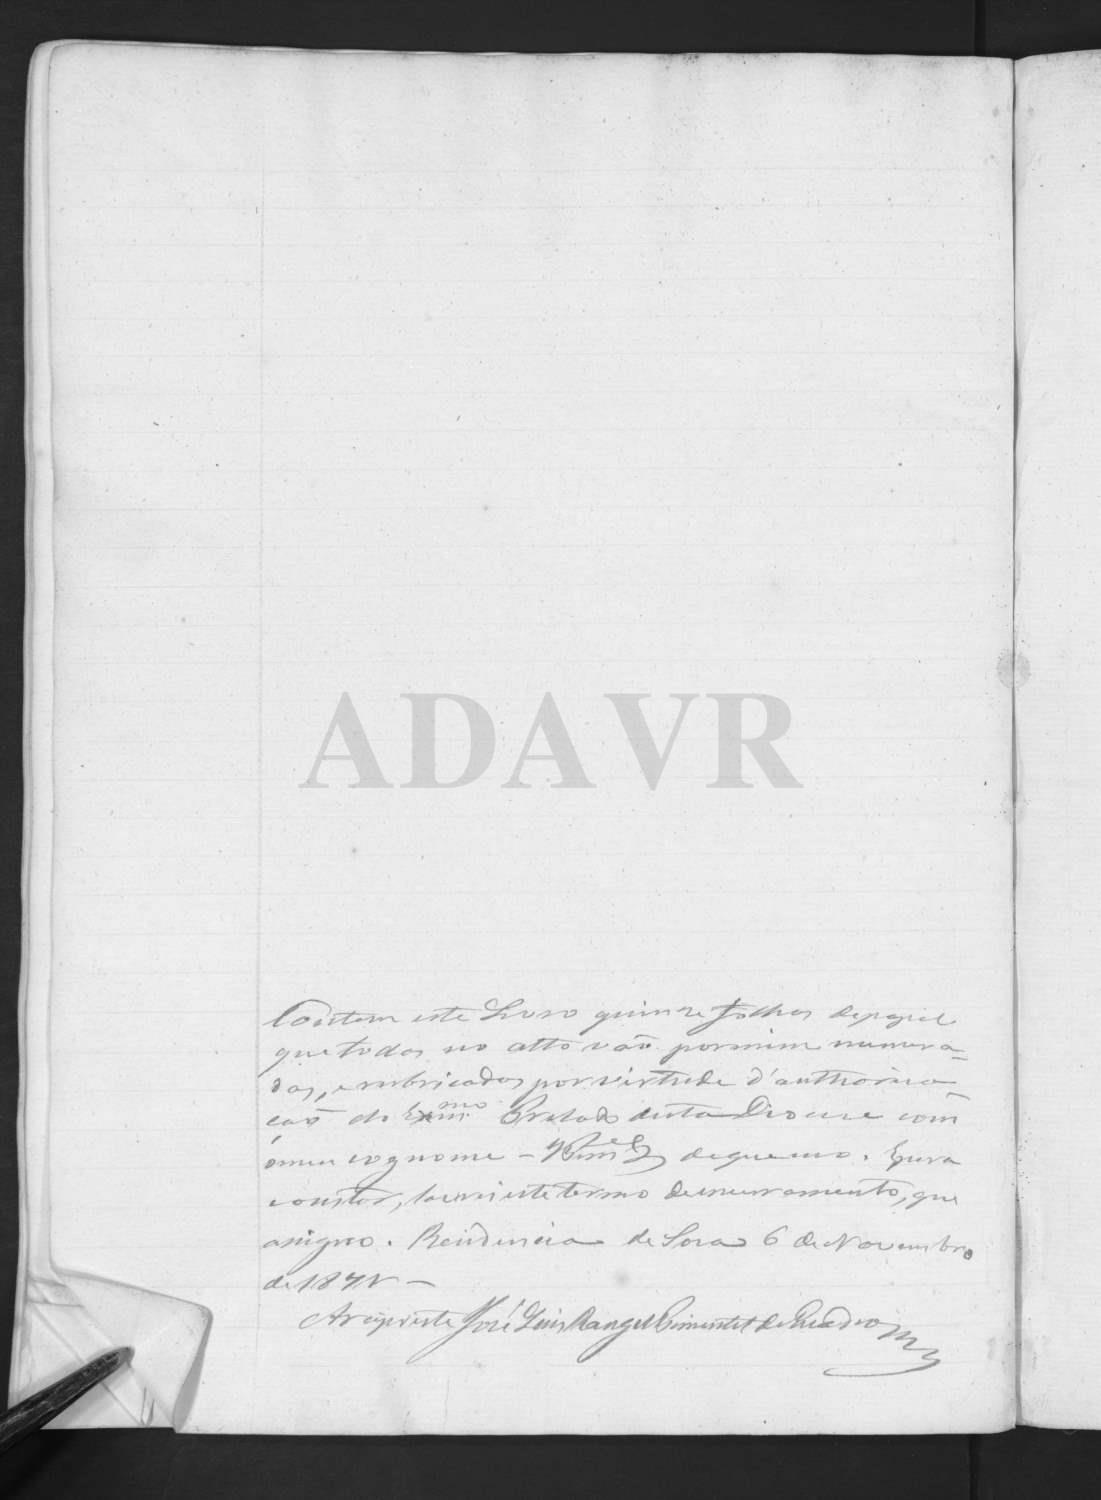 ADAVR
Contem este Livro quinze folhas de papel
que todas no alto vão por mim numera=
das, e rubricadas por virtude d'authorisa
ção do Exmo. Prelado desta Diocese com
o meu cognome - Pimel de que uso. E para
constar, lavrei este termo de encerramento, que
assigno. Residencia de 6 de Novembro
de 187
Arcipreste José Luis Rangel Pimentel de Quadros